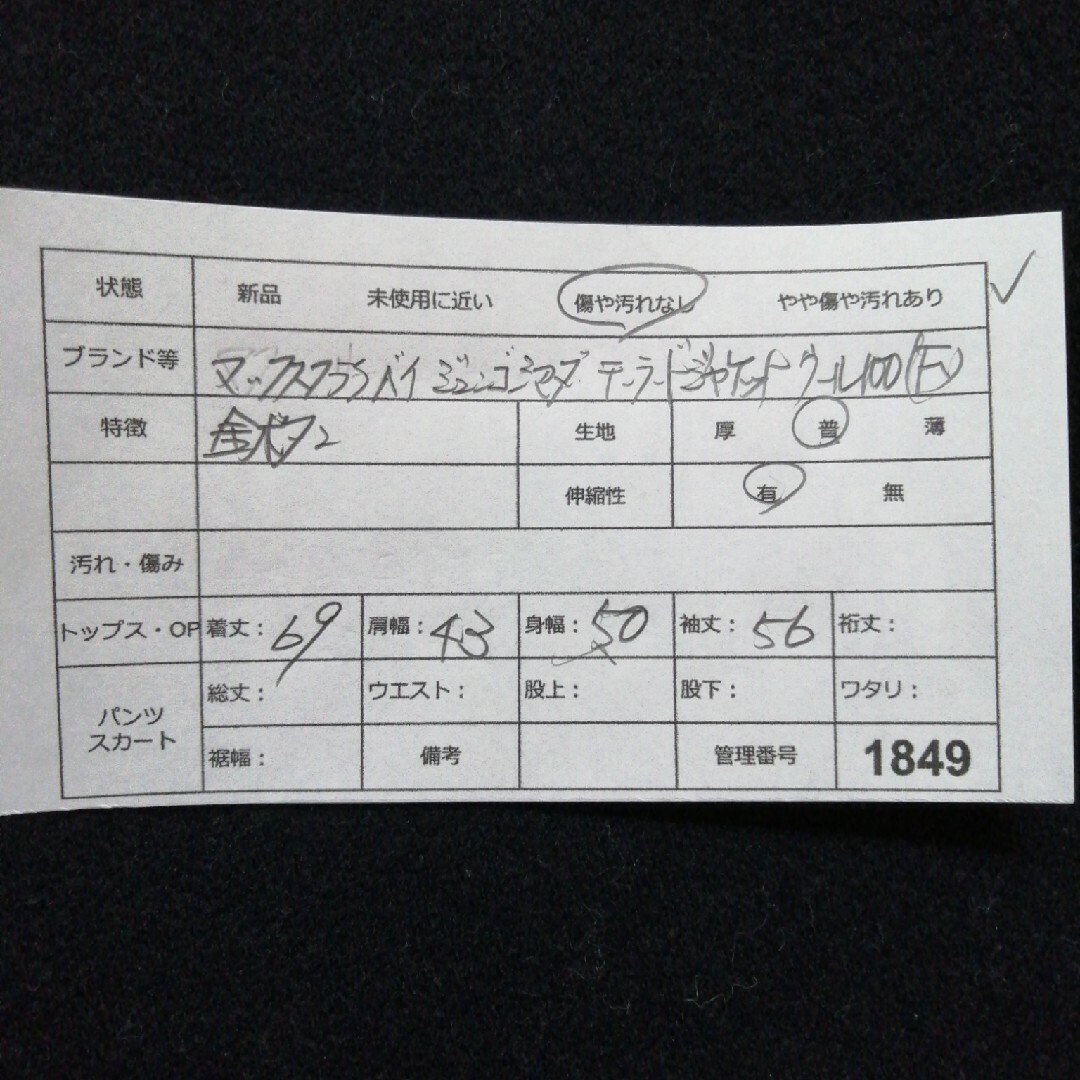 状態 新品 未使用に近い 傷や汚れなし やや傷や汚れあり
ブランド等 マックスフランバイ ジュンコシマダ テーラードジャケット ウール100
特徴 金ボタン 生地 厚 普 薄
伸縮性 有 無
汚れ・傷み
トップス・OP 着丈: 69 肩幅: 43 身幅: 50 袖丈: 56 裄丈:
パンツ スカート
総丈: ウエスト: 股上: 股下: ワタリ:
裾幅: 備考 管理番号 1849